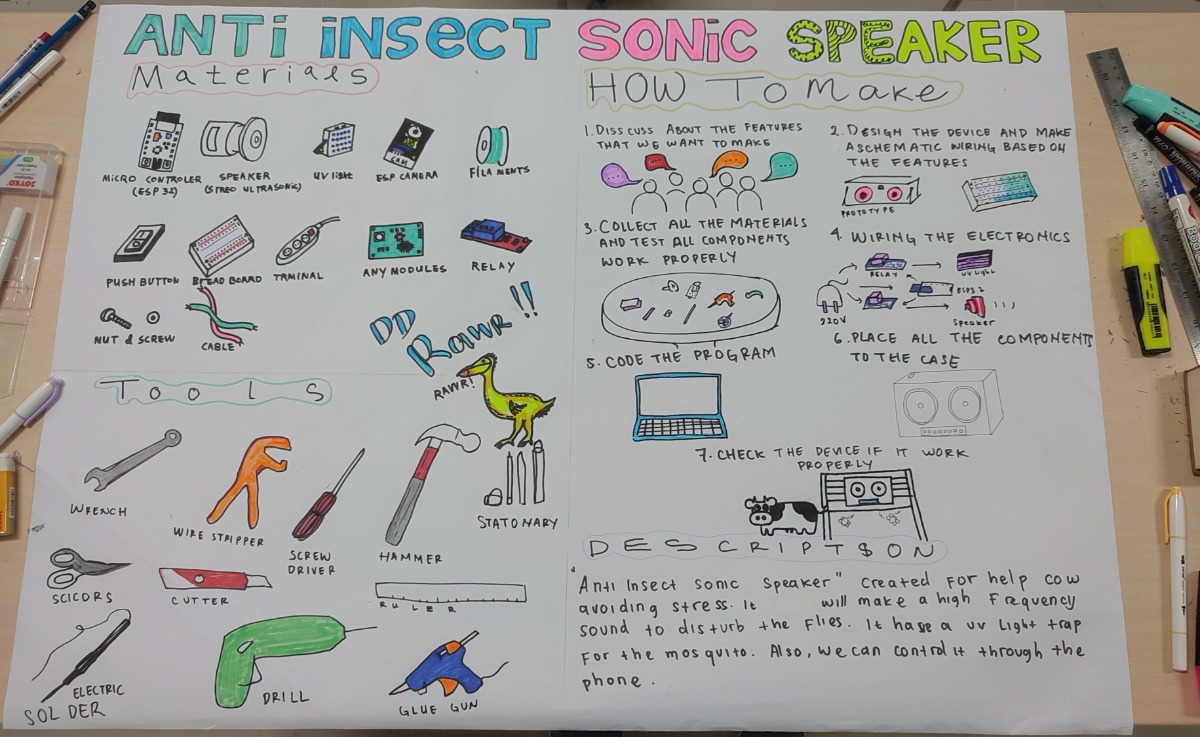 ANTi iNSECT SONiC SPEAKER
Materials
MICRO CONTROLER
(ESP 32)
SPEAKER
(STREO ULTRASONIC)
UV light
CAM
ESP CAMERA
FILAMENTS
PUSH BUTTON
BREAD BOARD
TRMINAL
ANY MODULES
RELAY
NUT & SCREW
CABLE
DD
Rawr!!
RAWR!
TOOLS
WRENCH
WIRE STRIPPER
SCREW
DRIVER
HAMMER
STATONARY
SCICORS
CUTTER
RULER
ELECTRIC
SOLDER
DRILL
GLUE GUN
HOW TO Make
1. DISSCUSS ABOUT THE FEATURES
THAT WE WANT TO MAKE
2. DESIGN THE DEVICE AND MAKE
A SCHEMATIC WIRING BASED ON
THE FEATURES
PROTOTYPE
3. COLLECT ALL THE MATERIALS
AND TEST ALL COMPONENTS
WORK PROPERLY
4. WIRING THE ELECTRONICS
RELAY
UV Light
220V
Speaker
5. CODE THE PROGRAM
6. PLACE ALL THE COMPONENTS
TO THE CASE
7. CHECK THE DEVICE IF IT WORK
PROPERLY
DESCRIPT$ON
"Anti Insect Sonic Speaker" created For help cow
avoiding stress. It will make a high Frequency
sound to disturb the Flies. It hase a uv Light trap
For the mosquito. Also, we can control it through the
phone.
JOYKO